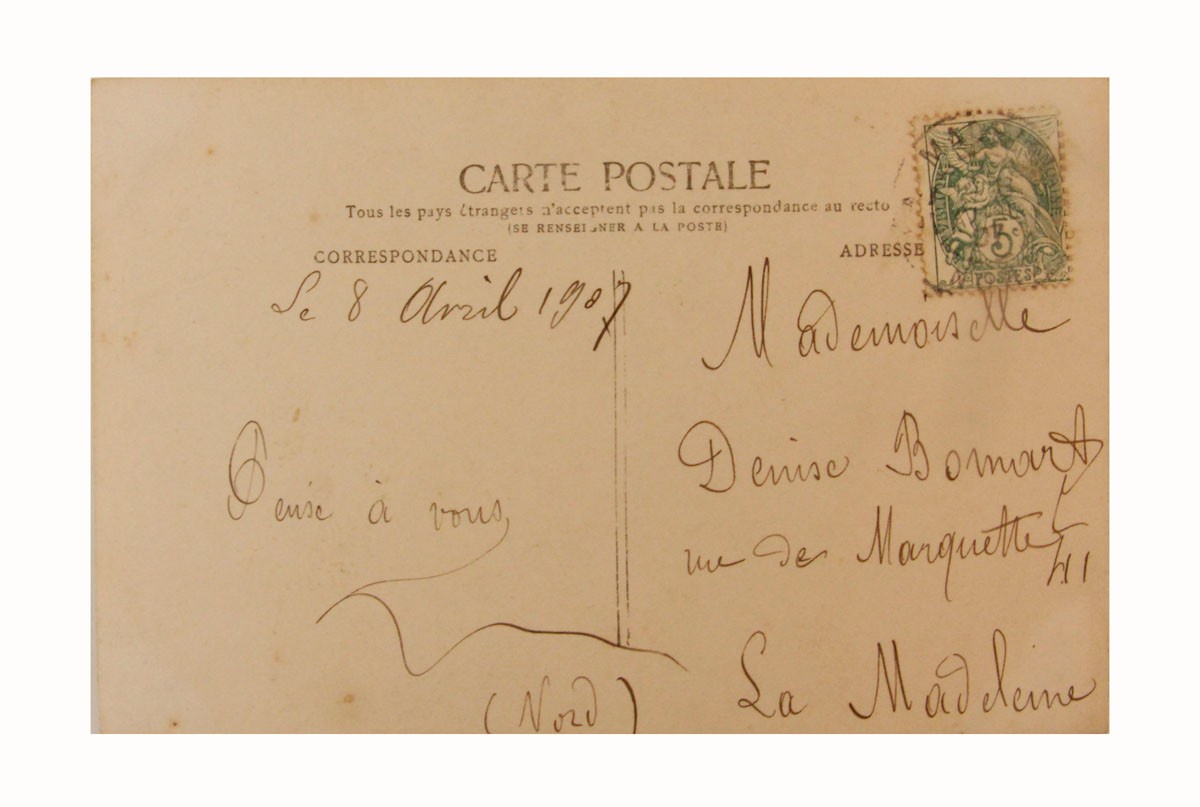 CARTE POSTALE
Tous les pays étrangers n'acceptent pas la correspondance au recto
(SE RENSEIGNER A LA POSTE)
CORRESPONDANCE
ADRESSE
Le 8 Avril 1907
Pense à vous
Mademoiselle
Denise Bomart
rue de Marquette
41
La Madeleine
(Nord)
5c
POSTES